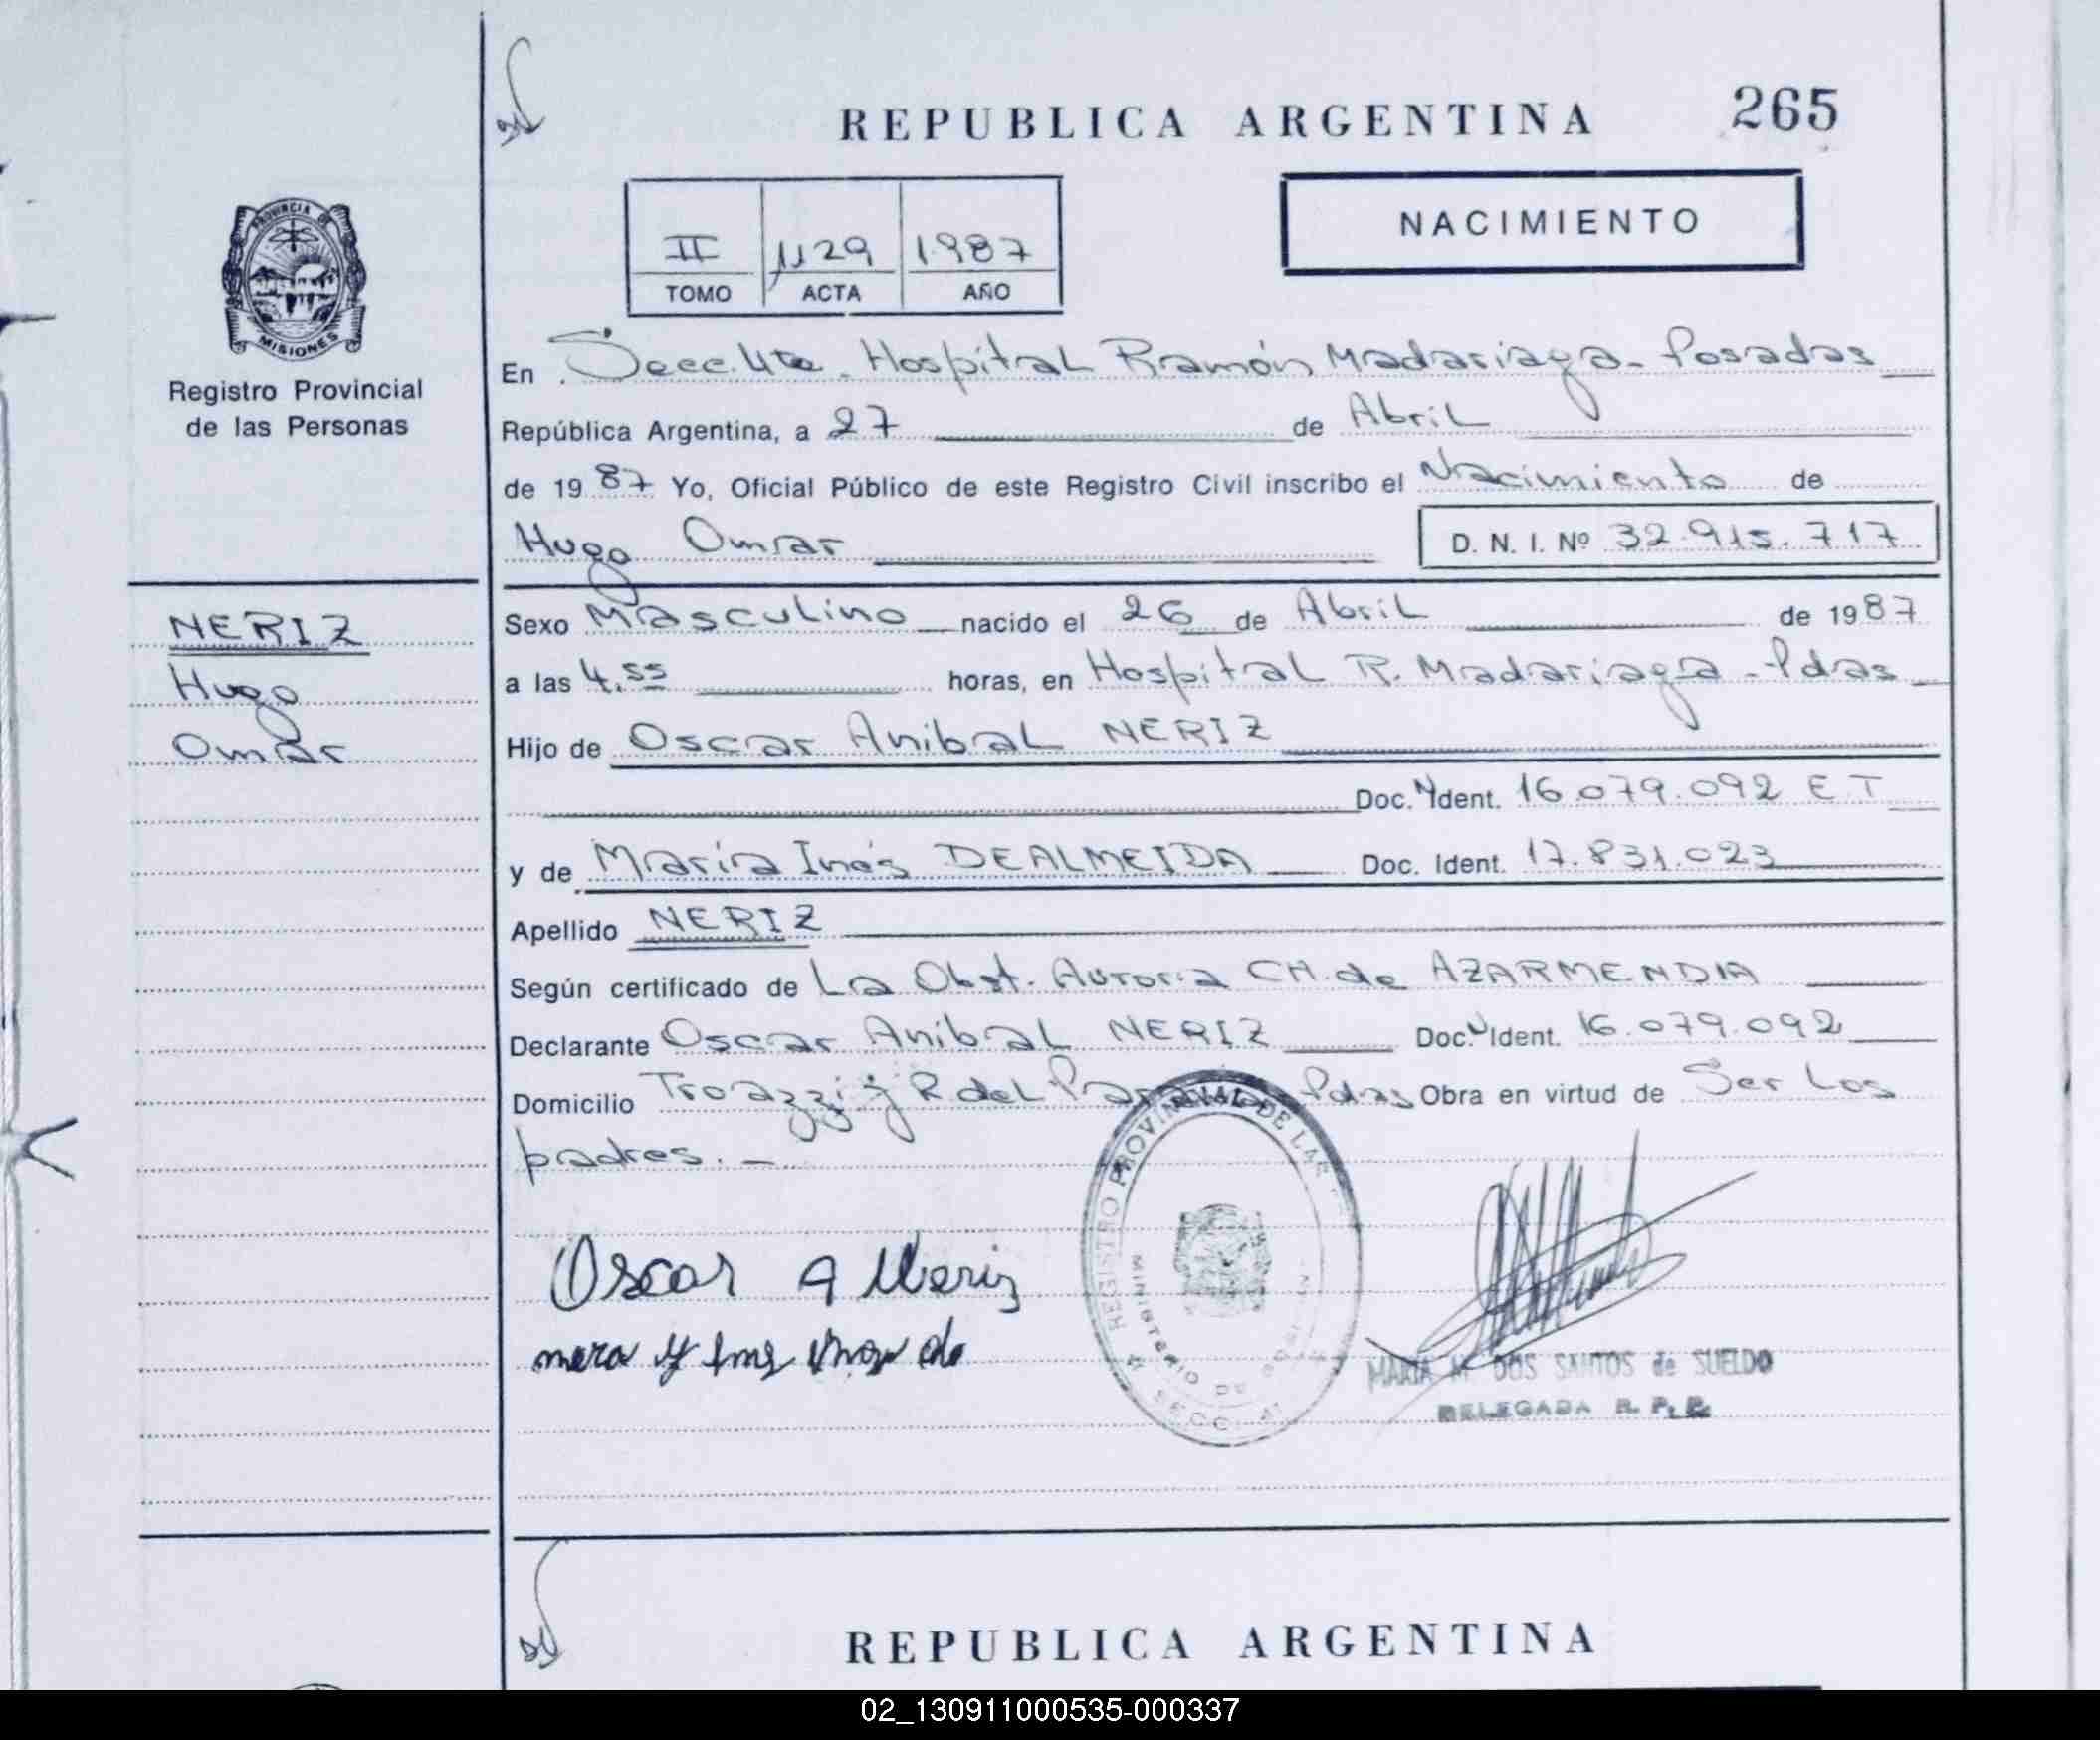 REPUBLICA ARGENTINA 265
NACIMIENTO
II 1129 1987
TOMO ACTA AÑO
PROVINCIA DE MISIONES
Registro Provincial
de las Personas
En Secc. 4ta. Hospital Ramón Madariaga - Posadas
República Argentina, a 27 de Abril
de 1987 Yo, Oficial Público de este Registro Civil inscribo el Nacimiento de
Hugo Omar D. N. I. Nº 32.915.717
NERIZ
Hugo
Omar
Sexo Masculino nacido el 26 de Abril de 1987
a las 4.55 horas, en Hospital R. Madariaga - Pdas
Hijo de Oscar Anibal NERIZ
Doc. Ident. 16.079.092 E T
y de María Inés DEALMEIDA Doc. Ident. 17.831.023
Apellido NERIZ
Según certificado de La Obst. Aurora CH. de AZARMENDIA
Declarante Oscar Anibal NERIZ Doc. Ident. 16.079.092
Domicilio y R del Pdas Obra en virtud de Ser Los
padres. -
REGISTRO PROVINCIAL DE LAS
MINISTERIO DE
SECC. 4
Oscar A Neriz
MARIA M. DOS SANTOS de SUELDO
DELEGADA R. P. P.
REPUBLICA ARGENTINA
02_130911000535-000337